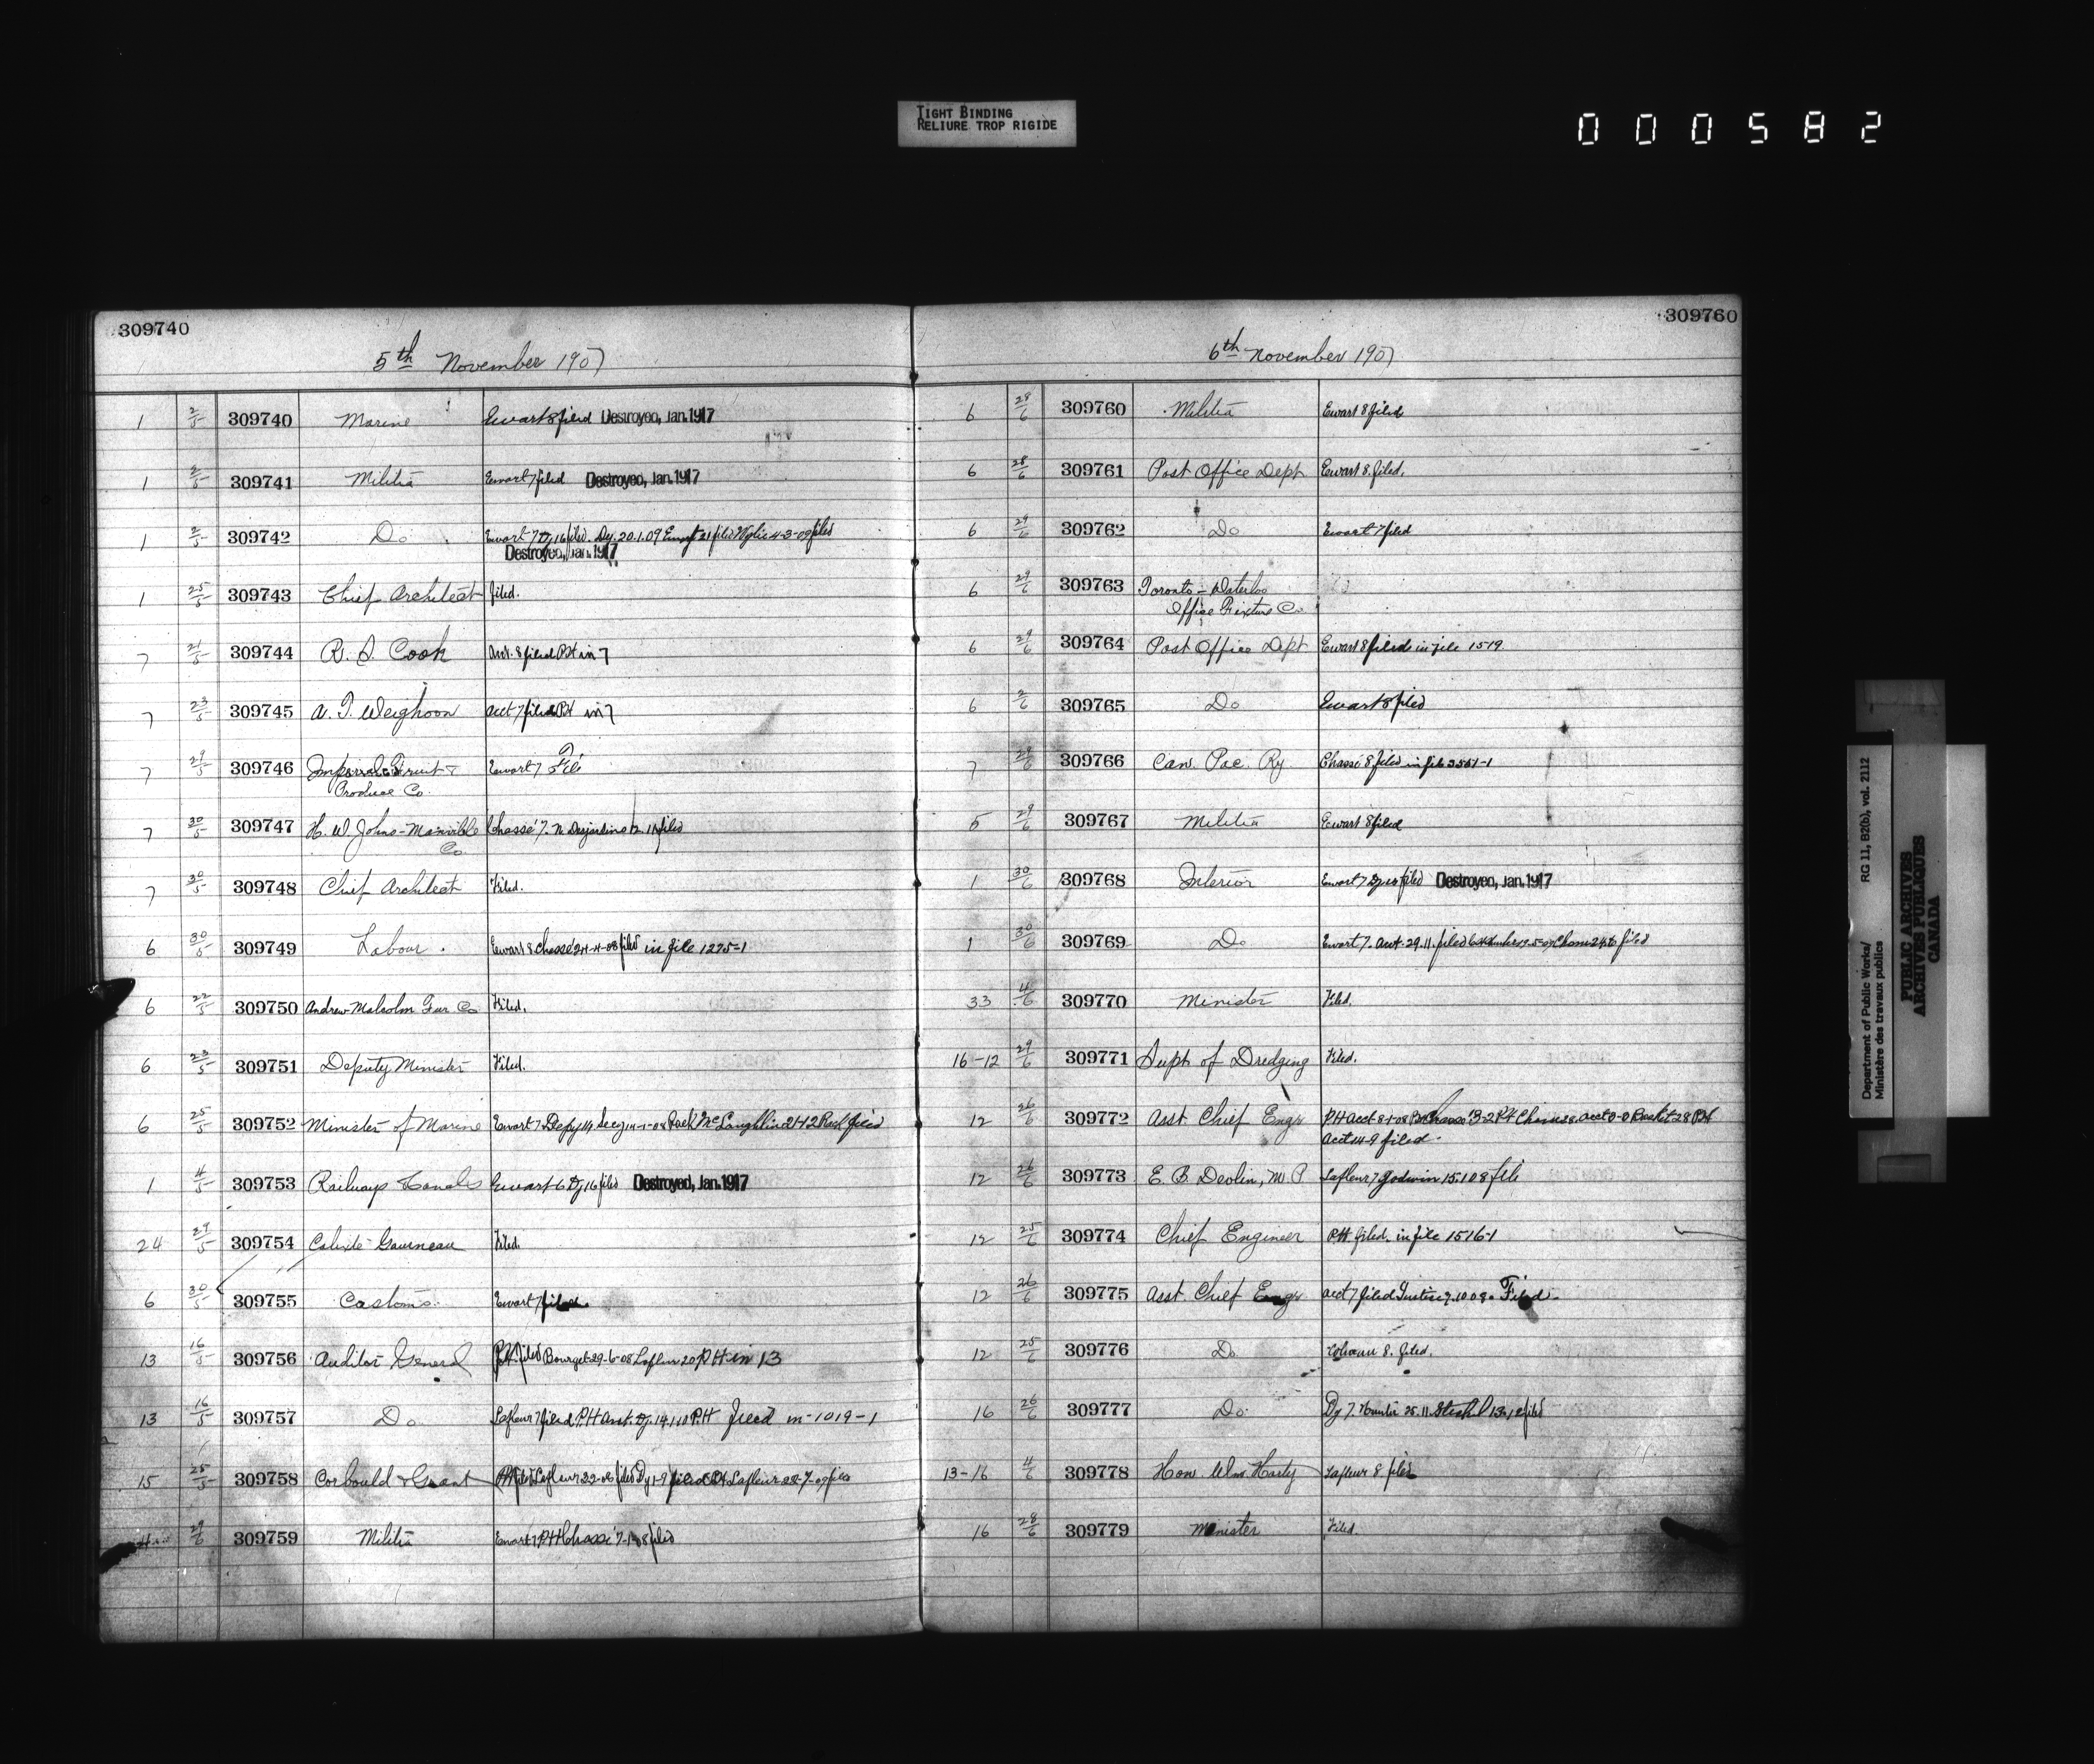 TIGHT BINDING
RELIURE TROP RIGIDE
000582
309740
5th November 1907
1 2/5 309740 Marine Ewart 8 filed Destroyed, Jan. 1917
1 2/5 309741 Militia Ewart 7 filed Destroyed, Jan. 1917
1 2/5 309742 Do Ewart 7 Dy 16 filed. Dy. 20.1.09 Ewart 21 filed Wylie 4-3-09 filed
Destroyed, Jan. 1917
1 25/5 309743 Chief Architect filed.
7 309744 R. S. Cook 8 filed PH in 7
7 23/5 309745 A. T. Weighoon Acct 7 filed PH in 7
7 309746 Imperial Fruit &
Produce Co. Ewart 7 File
7 30/5 309747 H. W. Johns-Manville
Co Chassé 7. N. Desjardins filed
7 30/5 309748 Chief Architect Filed.
6 30/5 309749 Labour. Ewart 8 Chassé 24-4-08 filed in file 1275-1
6 22/5 309750 Andrew Malcolm Fur Co Filed.
6 23/5 309751 Deputy Minister Filed.
6 25/5 309752 Minister of Marine Ewart 7 Depy 14 Secy 14-1-08 Rack McLaughlin 21-12 Rack filed
1 4/5 309753 Railways & Canals Ewart 6 Dy 16 filed Destroyed, Jan. 1917
24 29/5 309754 Calixte Gauneau Filed
6 30/5 309755 Customs. Ewart 7 filed.
13 16/5 309756 Auditor General PH filed Bourget 29-6-08 Lafleur 20 PH in 13
13 16/5 309757 Do Lafleur 7 filed PH Asst. Dy. 14.1.10 PH filed in-1019-1
15 25/5 309758 Corbould & Grant Lafleur 22-08 filed Dy 1-9 filed PH Lafleur 22-7-09 filed
29/6 309759 Militia Ewart 7 PH Chassé 7-1-08 filed
309760
6th November 1907
6 28/6 309760 Militia Ewart 8 filed
6 28/6 309761 Post Office Dept Ewart 8. filed.
6 29/6 309762 Do Ewart 7 filed
6 29/6 309763 Toronto-Waterloo
Office Fixture Co.
6 29/6 309764 Post Office Dept Ewart 8 filed in file 1519
6 2/6 309765 Do Ewart 8 filed
7 29/6 309766 Can. Pac. Ry. Chassé 8 filed in file 3551-1
5 29/6 309767 Militia Ewart 8 filed
1 30/6 309768 Interior Ewart 7 Dy filed Destroyed, Jan. 1917
1 30/6 309769 Do Ewart 7. Acct. 29.11. filed filed
33 4/6 309770 Minister Filed.
16-12 29/6 309771 Supt of Dredging Filed.
12 26/6 309772 Asst Chief Engr PH Acct 8-1-08 PH Chassé 13-2 PH 28 PH
Acct 14-9 filed.
12 26/6 309773 E. B. Devlin, M.P Lafleur 7 Godwin 15.1.08 file
12 25/6 309774 Chief Engineer PH. filed. in file 1516-1
12 26/6 309775 Asst Chief Engr Acct 7 filed Justice 9.10.08. Filed.
12 25/6 309776 Do 8. filed.
16 26/6 309777 Do. Dy 7. Hunter 25.11. 13.12 filed
13-16 4/6 309778 Hon. Wm. Harty Lafleur 8 filed
16 28/6 309779 Minister Filed.
Department of Public Works/ RG 11, B2(b), vol. 2112
Ministère des travaux publics
PUBLIC ARCHIVES
ARCHIVES PUBLIQUES
CANADA